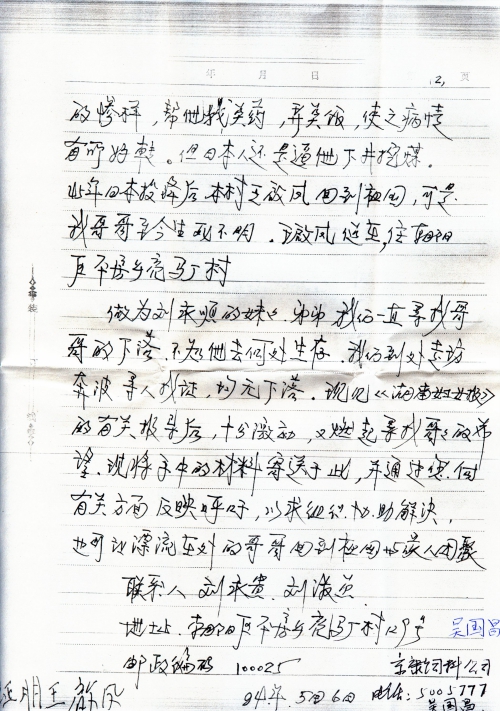 年 月 日 (2) 页
的惨样,帮他找类药,弄类饭,使之病情
有所好转。但日本人还是逼他下井挖煤。
45年日本投降后本村王殿凤回到祖国,可是
我哥哥至今生死不明。王殿凤健在,住朝阳
区平房乡亮马厂村
做为刘来顺的妹妹、弟弟我们一直寻找哥
哥的下落。不知他去何处生存。我们到处走访
奔波寻人找证,均无下落。现见《湖南妇女报》
的有关报导后,十分激动,又燃起寻找哥哥的希
望。现将手中的材料寄送于此,并通过您们向
有关方面反映呼吁,以求组织协助解决,
也可让漂流在外的哥哥回到祖国与家人团聚
联系人 刘来贵. 刘淑
地址.朝阳区平房乡亮马厂村129号 吴国昌
邮政编码 100025 京 饲料公司
94年.5月6日 电话:5005777
吴国昌.
证明王 凤